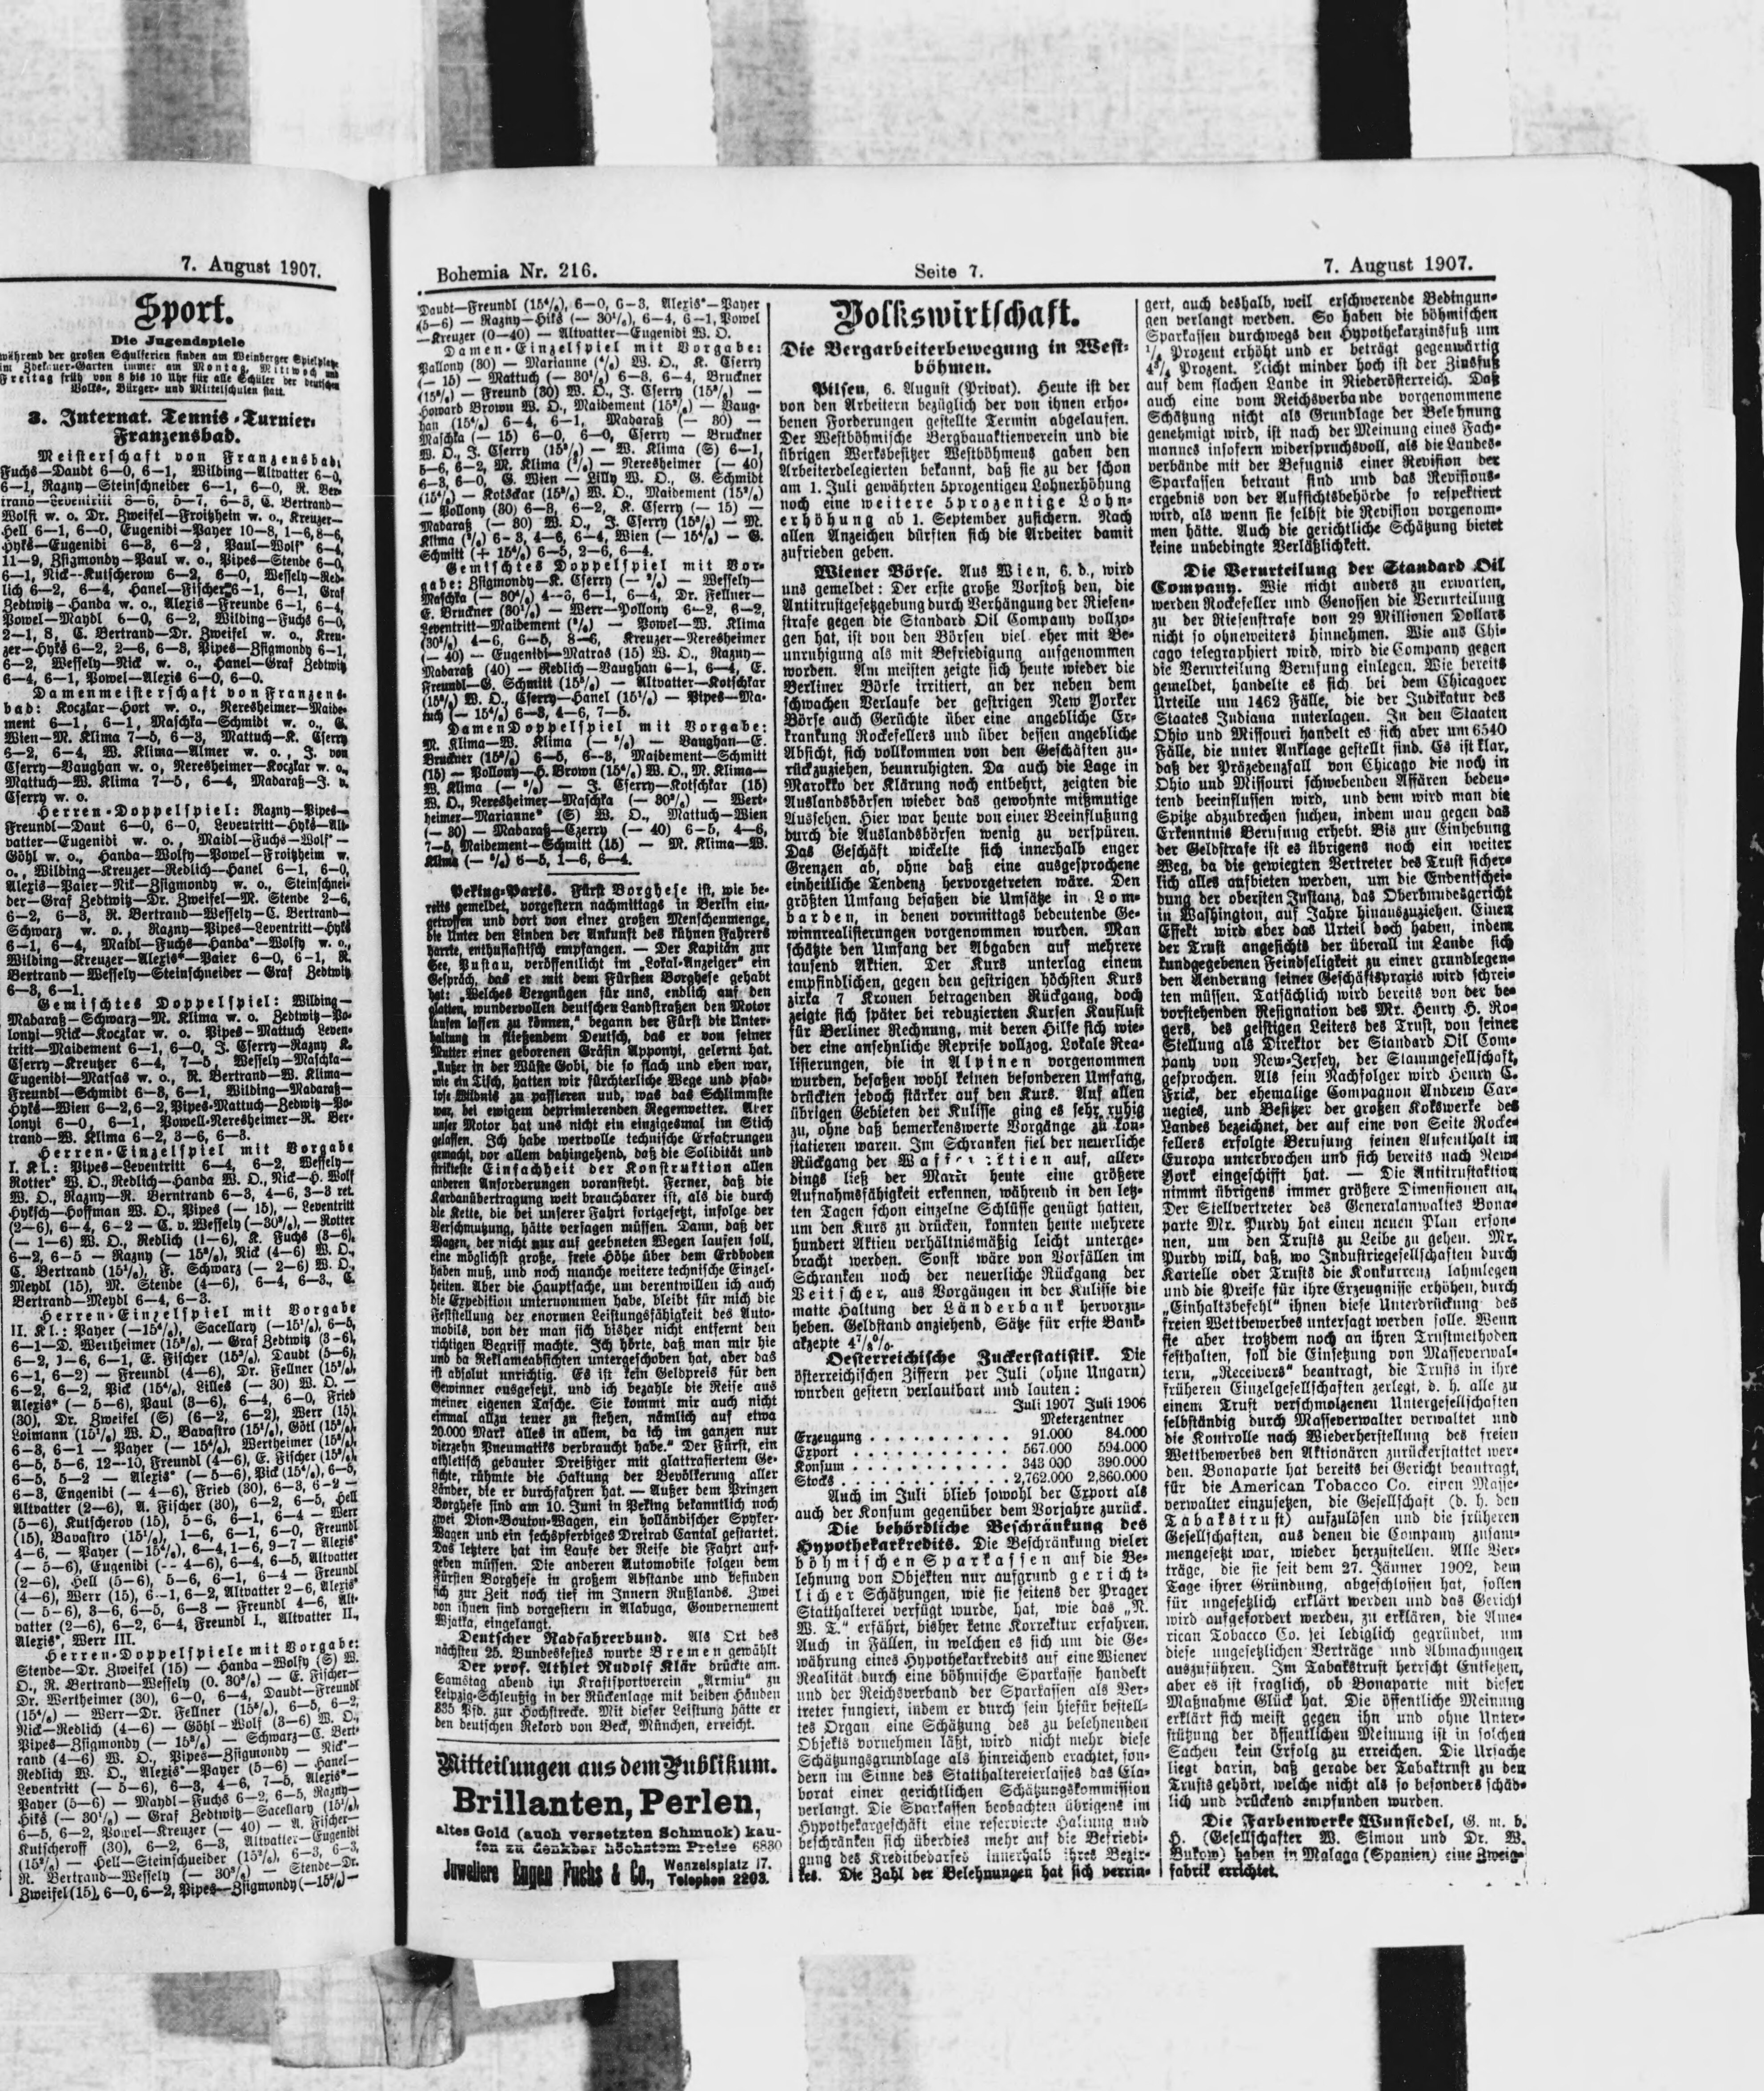 7. August 1907.
Sport.
Die Jugendspiele
während der großen Schulferien finden am Weinberger Spielplatz
im Zdekauer-Garten immer am Montag, Mittwoch und
Freitag früh von 8 bis 10 Uhr für alle Schüler der deutschen
Volks-, Bürger- und Mittelschulen statt.
3. Internat. Tennis-Turnier.
Franzensbad.
Meisterschaft von Franzensbad:
Fuchs—Daudt 6—0, 6—1, Wilding—Altvatter 6—0,
6—1, Razny—Steinschneider 6—1, 6—0, R. Ber-
Wolfi w. o. Dr. Zweifel—Froitzhein w. o., Kreuzer—
Hell 6—1, 6—0, Eugenidi—Payer 10—8, 1—6, 8—6,
Hyks—Eugenidi 6—3, 6—2, Paul—Wolf* 6—4,
11—9, Zsigmondy—Paul w. o., Pipes—Stende 6—0,
6—1, Nick—Kutscherow 6—2, 6—0, Wessely—Red-
lich 6—2, 6—4, Hanel—Fischer 6—1, 6—1, Graf
Zedtwitz—Handa w. o., Alexis—Freunde 6—1, 6—4,
Powel—Maydl 6—0, 6—2, Wilding—Fuchs 6—0,
2—1, 8, C. Bertrand—Dr. Zweifel w. o., Kreu-
zer—Hyks 6—2, 2—6, 6—3, Pipes—Zsigmondy 6—1,
6—2, Wessely—Nick w. o., Hanel—Graf Zedtwitz
6—4, 6—1, Powel—Alexis 6—0, 6—0.
Damenmeisterschaft von Franzens-
bad: Koczkar—Hort w. o., Neresheimer—Maide-
ment 6—1, 6—1, Maschka—Schmidt w. o., G.
Wien—M. Klima 7—5, 6—3, Mattuch—K. Cserry
6—2, 6—4, W. Klima—Almer w. o., J. von
Cserry—Vaughan w. o., Neresheimer—Koczkar w. o.,
Mattuch—W. Klima 7—5, 6—4, Madaraß—J. v.
Cserry w. o.
Herren-Doppelspiel: Razny—Pipes—
Freundl—Daut 6—0, 6—0, Leventritt—Hyks—Alt-
vatter—Eugenidi w. o., Maidl—Fuchs—Wolf*—
Göhl w. o., Handa—Wolfy—Powel—Froitzheim w.
o., Wilding—Kreuzer—Redlich—Hanel 6—1, 6—0,
Alexis—Paier—Nik—Zsigmondy w. o., Steinschnei-
der—Graf Zedtwitz—Dr. Zweifel—M. Stende 2—6,
6—2, 6—3, R. Bertrand—Wessely—C. Bertrand—
Schwarz w. o., Razny—Pipes—Leventritt—Hyks
6—1, 6—4, Maidl—Fuchs—Handa*—Wolfy w. o.,
Wilding—Kreuzer—Alexis*—Paier 6—0, 6—1, R.
Bertrand—Wessely—Steinschneider—Graf Zedtwitz
6—3, 6—1.
Gemischtes Doppelspiel: Wilding—
Madaraß—Schwarz—M. Klima w. o. Zedtwitz—Po-
lonyi—Nick—Koczkar w. o. Pipes—Mattuch Leven-
tritt—Maidement 6—1, 6—0, J. Cserry—Razny K.
Cserry—Kreutzer 6—4, 7—5, Wessely—Maschka—
Eugenidi—Matsas w. o., R. Bertrand—W. Klima—
Freundl—Schmidt 6—3, 6—1, Wilding—Madaraß—
Hyks—Wien 6—2, 6—2, Pipes-Mattuch—Zedwitz—Po-
lonyi 6—0, 6—1, Powell-Neresheimer—R. Ber-
trand—W. Klima 6—2, 3—6, 6—3.
Herren-Einzelspiel mit Vorgabe
I. Kl.: Pipes—Leventritt 6—4, 6—2, Wessely—
Rotter* W. O., Redlich—Handa W. O., Nick—H. Wolf
W. O., Razny—R. Berntrand 6—3, 4—6, 3—3 ret.
Hyksch—Hoffman W. O., Pipes (— 15), — Leventritt
(2—6), 6—4, 6—2 — C. v. Wessely (—30³/₆), — Rotter
(— 1—6) W. O., Redlich (1—6), K. Fuchs (3—6),
6—2, 6—5 — Razny (— 15³/₆), Nick (4—6) W. O.,
C. Bertrand (15¹/₆), F. Schwarz (— 2—6) W. O.,
Meydl (15), M. Stende (4—6), 6—4, 6—3., C.
Bertrand—Meydl 6—4, 6—3.
Herren-Einzelspiel mit Vorgabe
II. Kl.: Payer (—15⁴/₆), Sacellary (—15¹/₆), 6—5,
6—1—D. Wertheimer (15³/₆), — Graf Zedtwitz (3—6),
6—2, 1—6, 6—1, E. Fischer (15³/₆), Daudt (5—6),
6—1, 6—2) — Freundl (4—6), Dr. Fellner (15³/₆),
6—2, 6—2, Pick (15⁴/₆), Lilles (— 30) W. O. —
Alexis* (— 5—6), Paul (3—6), 6—4, 6—0, Fried
(30), Dr. Zweifel (S) (6—2, 6—2), Werr (15),
Loimann (15¹/₆) W. O., Bavastro (15¹/₆), Götl (15³/₆),
6—3, 6—1 — Payer (— 15⁴/₆), Wertheimer (15³/₆),
6—5, 5—6, 12—10, Freundl (4—6), E. Fischer (15³/₆),
6—5, 5—2 — Alexis* (—5—6), Pick (15⁴/₆), 6—3,
6—3, Engenidi (— 4—6), Fried (30), 6—3, 6—2 —
Altvatter (2—6), A. Fischer (30), 6—2, 6—5, Hell
(5—6), Kutscherov (15), 5—6, 6—1, 6—4 — Werr
(15), Bavastro (15¹/₆), 1—6, 6—1, 6—0, Freundl
4—6, — Payer (—15⁴/₆), 6—4, 1—6, 9—7 — Alexis*
(— 5—6), Eugenidi (— 4—6), 6—4, 6—5, Altvatter
(2—6), Hell (5—6), 5—6, 6—1, 6—4 — Freundl
(4—6), Werr (15), 6—1, 6—2, Altvatter 2—6, Alexis*
(— 5—6), 3—6, 6—5, 6—3 — Freundl 4—6, Alt-
vatter (2—6), 6—2, 6—4, Freundl I., Altvatter II.,
Alexis*, Werr III.
Herren-Doppelspiele mit Vorgabe:
Stende—Dr. Zweifel (15) — Handa—Wolfy (S) W.
O., R. Bertrand—Wessely (O. 30³/₆) — E. Fischer—
Dr. Wertheimer (30), 6—0, 6—4, Daudt—Freundl
(15⁴/₆) — Werr—Dr. Fellner (15³/₆), 6—5, 6—2,
Nick—Redlich (4—6) — Göhl—Wolf (3—6) W. O.,
Pipes—Zsigmondy (— 15³/₆) — Schwarz—C. Bert-
rand (4—6) W. O., Pipes—Zsigmondy — Nick*—
Redlich W. O., Alexis*—Payer (5—6) — Hanel—
Leventritt (— 5—6), 6—3, 4—6, 7—5, Alexis*—
Payer (5—6) — Maydl—Fuchs 6—2, 6—5, Razny—
Hiks (— 30¹/₆) — Graf Zedtwitz—Sacellary (15¹/₆),
6—5, 6—2, Powel—Kreuzer (— 40) — A. Fischer—
Kutscheroff (30), 6—2, 6—3, Altvatter—Eugenidi
(15³/₆) — Hell—Steinschneider (15³/₆), 6—3, 6—3,
R. Bertrand—Wessely (— 30³/₆) — Stende—Dr.
Zweifel (15), 6—0, 6—2, Pipes—Zsigmondy (—15³/₆)—
Bohemia Nr. 216. Seite 7. 7. August 1907.
Daudt—Freundl (15⁴/₆), 6—0, 6—3, Alexis*—Payer
(5—6) — Razny—Hiks (— 30¹/₆), 6—4, 6—1, Powel
—Kreuzer (0—40) — Altvatter—Eugenidi W. O.
Damen-Einzelspiel mit Vorgabe:
Pallony (30) — Marianne (⁴/₆) W. O., K. Cserry
(— 15) — Mattuch (— 30¹/₆) 6—3, 6—4, Bruckner
(15³/₆) — Freund (30) W. O., J. Cserry (15³/₆) —
Howard Brown W. O., Maidement (15³/₆) — Vaug-
han (15⁴/₆) 6—4, 6—1, Madaraß (— 30) —
Maschka (— 15) 6—0, 6—0, Cserry — Bruckner
W. O., J. Cserry (15³/₆) — W. Klima (S) 6—1,
5—6, 6—2, M. Klima (³/₆) — Neresheimer (— 40)
6—3, 6—0, G. Wien — Lilly W. O., G. Schmidt
(15⁴/₆) — Kotsckar (15³/₆) W. O., Maidement (15³/₆)
— Pollony (30) 6—3, 6—2, K. Cserry (— 15) —
Madaraß (— 30) W. O., J. Cserry (15³/₆) — M.
Klima (³/₆) 6—3, 4—6, 6—4, Wien (— 15⁴/₆) — G.
Schmitt (+ 15⁴/₆) 6—5, 2—6, 6—4.
Gemischtes Doppelspiel mit Vor-
gabe: Zsigmondy—K. Cserry (— ³/₆) — Wessely—
Maschka (— 30⁴/₆) 4—6, 6—1, 6—4, Dr. Fellner—
E. Bruckner (30¹/₆) — Werr—Pollony 6—2, 6—2,
Leventritt—Maidement (³/₆) — Powel—W. Klima
(30³/₆) 4—6, 6—5, 8—6, Kreuzer—Neresheimer
(— 40) — Eugenidi—Matras (15) W. O., Razny—
Madaraß (40) — Redlich—Vaughan 6—1, 6—4, E.
Freundl—G. Schmitt (15³/₆) — Altvatter—Kotschkar
(15³/₆) W. O., Cserry—Hanel (15¹/₆) — Pipes—Ma-
tuch (— 15⁴/₆) 6—3, 4—6, 7—5.
Damen Doppelspiel mit Vorgabe:
M. Klima—W. Klima (— ³/₆) — Vaughan—E.
Bruckner (15³/₆) 6—5, 6—3, Maidement—Schmitt
(15) — Pollony—H. Brown (15⁴/₆) W. O., M. Klima—
W. Klima (— ³/₆) — J. Cserry—Kotschkar (15)
W. O., Neresheimer—Maschka (— 30³/₆) — Wert-
heimer—Marianne* (S) W. O., Mattuch—Wien
(— 30) — Madaraß—Czerry (— 40) 6—5, 4—6,
7—5, Maidement—Schmitt (15) — M. Klima—W.
Klima (— ³/₆) 6—5, 1—6, 6—4.
Peking-Paris. Fürst Borghese ist, wie be-
reits gemeldet, vorgestern nachmittags in Berlin ein-
getroffen und dort von einer großen Menschenmenge,
die Unter den Linden der Ankunft des kühnen Fahrers
harrte, enthusiastisch empfangen. — Der Kapitän zur
See, Pustau, veröffentlicht im „Lokal-Anzeiger" ein
Gespräch, das er mit dem Fürsten Borghese gehabt
hat: „Welches Vergnügen für uns, endlich auf den
glatten, wundervollen deutschen Landstraßen den Motor
laufen lassen zu können," begann der Fürst die Unter-
haltung in fließendem Deutsch, das er von seiner
Mutter einer geborenen Gräfin Apponyi, gelernt hat.
„Außer in der Wüste Gobi, die so flach und eben war,
wie ein Tisch, hatten wir fürchterliche Wege und pfad-
lose Wildnis zu passieren und, was das Schlimmste
war, bei ewigem deprimierenden Regenwetter. Aber
unser Motor hat uns nicht ein einzigesmal im Stich
gelassen. Ich habe wertvolle technische Erfahrungen
gemacht, vor allem dahingehend, daß die Solidität und
strikteste Einfachheit der Konstruktion allen
anderen Anforderungen voransteht. Ferner, daß die
Kardanübertragung weit brauchbarer ist, als die durch
die Kette, die bei unserer Fahrt fortgesetzt, infolge der
Verschmutzung, hätte versagen müssen. Dann, daß der
Wagen, der nicht nur auf geebneten Wegen laufen soll,
eine möglichst große, freie Höhe über dem Erdboden
haben muß, und noch manche weitere technische Einzel-
heiten. Aber die Hauptsache, um derentwillen ich auch
die Expedition unternommen habe, bleibt für mich die
Feststellung der enormen Leistungsfähigkeit des Auto-
mobils, von der man sich bisher nicht entfernt den
richtigen Begriff machte. Ich hörte, daß man mir hie
und da Reklameabsichten untergeschoben hat, aber das
ist absolut unrichtig. Es ist kein Geldpreis für den
Gewinner ausgesetzt, und ich bezahle die Reise aus
meiner eigenen Tasche. Sie kommt mir auch nicht
einmal allzu teuer zu stehen, nämlich auf etwa
20.000 Mark alles in allem, da ich im ganzen nur
vierzehn Pneumatiks verbraucht habe." Der Fürst, ein
athletisch gebauter Dreißiger mit glattrasiertem Ge-
sichte, rühmte die Haltung der Bevölkerung aller
Länder, die er durchfahren hat. — Außer dem Prinzen
Borghese sind am 10. Juni in Peking bekanntlich noch
zwei Dion-Bouton-Wagen, ein holländischer Spyker-
Wagen und ein sechspferdiges Dreirad Cantal gestartet.
Das letztere hat im Laufe der Reise die Fahrt auf-
geben müssen. Die anderen Automobile folgen dem
Fürsten Borghese in großem Abstande und befinden
sich zur Zeit noch tief im Innern Rußlands. Zwei
von ihnen sind vorgestern in Alabuga, Gouvernement
Wjatka, eingelangt.
Deutscher Radfahrerbund. Als Ort des
nächsten 25. Bundesfestes wurde Bremen gewählt
Der prof. Athlet Rudolf Klär drückte am
Samstag abend im Kraftsportverein „Armin" zu
Leipzig-Schleußig in der Rückenlage mit beiden Händen
335 Pfd. zur Hochstrecke. Mit dieser Leistung hätte er
den deutschen Rekord von Beck, München, erreicht.
Mitteilungen aus dem Publikum.
Brillanten, Perlen,
altes Gold (auch versetzten Schmuck) kau-
fen zu denkbar höchstem Preise 6830
Juweliere Eugen Fuchs & Co., Wenzelsplatz 17.
Telephon 2203.
Volkswirtschaft.
Die Bergarbeiterbewegung in West-
böhmen.
Pilsen, 6. August (Privat). Heute ist der
von den Arbeitern bezüglich der von ihnen erho-
benen Forderungen gestellte Termin abgelaufen.
Der Westböhmische Bergbauaktienverein und die
übrigen Werksbesitzer Westböhmens gaben den
Arbeiterdelegierten bekannt, daß sie zu der schon
am 1. Juli gewährten 5prozentigen Lohnerhöhung
noch eine weitere 5prozentige Lohn-
erhöhung ab 1. September zusichern. Nach
allen Anzeichen dürften sich die Arbeiter damit
zufrieden geben.
Wiener Börse. Aus Wien, 6. d., wird
uns gemeldet: Der erste große Vorstoß den, die
Antitrustgesetzgebung durch Verhängung der Riesen-
strafe gegen die Standard Oil Company vollzo-
gen hat, ist von den Börsen viel eher mit Be-
unruhigung als mit Befriedigung aufgenommen
worden. Am meisten zeigte sich heute wieder die
Berliner Börse irritiert, an der neben dem
schwachen Verlaufe der gestrigen New Yorker
Börse auch Gerüchte über eine angebliche Er-
krankung Rockefellers und über dessen angebliche
Absicht, sich vollkommen von den Geschäften zu-
rückzuziehen, beunruhigten. Da auch die Lage in
Marokko der Klärung noch entbehrt, zeigten die
Auslandsbörsen wieder das gewohnte mißmutige
Aussehen. Hier war heute von einer Beeinflußung
durch die Auslandsbörsen wenig zu verspüren.
Das Geschäft wickelte sich innerhalb enger
Grenzen ab, ohne daß eine ausgesprochene
einheitliche Tendenz hervorgetreten wäre. Den
größten Umfang besaßen die Umsätze in Lom-
barden, in denen vormittags bedeutende Ge-
winnrealisierungen vorgenommen wurden. Man
schätzte den Umfang der Abgaben auf mehrere
tausend Aktien. Der Kurs unterlag einem
empfindlichen, gegen den gestrigen höchsten Kurs
zirka 7 Kronen betragenden Rückgang, doch
zeigte sich später bei reduzierten Kursen Kauflust
für Berliner Rechnung, mit deren Hilfe sich wie-
der eine ansehnliche Reprise vollzog. Lokale Rea-
lisierungen, die in Alpinen vorgenommen
wurden, besaßen wohl keinen besonderen Umfang,
drückten jedoch stärker auf den Kurs. Auf allen
übrigen Gebieten der Kulisse ging es sehr ruhig
zu, ohne daß bemerkenswerte Vorgänge zu kon-
statieren waren. Im Schranken fiel der neuerliche
Rückgang der auf, aller-
dings ließ der Markt heute eine größere
Aufnahmsfähigkeit erkennen, während in den letz-
ten Tagen schon einzelne Schlüsse genügt hatten,
um den Kurs zu drücken, konnten heute mehrere
hundert Aktien verhältnismäßig leicht unterge-
bracht werden. Sonst wäre von Vorfällen im
Schranken noch der neuerliche Rückgang der
Veitscher, aus Vorgängen in der Kulisse die
matte Haltung der Länderbank hervorzu-
heben. Geldstand anziehend, Sätze für erste Bank-
akzepte 4⁷/₈%.
Oesterreichische Zuckerstatistik. Die
österreichischen Ziffern per Juli (ohne Ungarn)
wurden gestern verlautbart und lauten:
Juli 1907 Juli 1906
Meterzentner
Erzeugung . . . . . . . . . . . 91.000 84.000
Export . . . . . . . . . . . 567.000 594.000
Konsum . . . . . . . . . . . 343 000 390.000
Stocks . . . . . . . . . . . 2,762.000 2,860.000
Auch im Juli blieb sowohl der Export als
auch der Konsum gegenüber dem Vorjahre zurück.
Die behördliche Beschränkung des
Hypothekarkredits. Die Beschränkung vieler
böhmischen Sparkassen auf die Be-
lehnung von Objekten nur aufgrund gericht-
licher Schätzungen, wie sie seitens der Prager
Statthalterei verfügt wurde, hat, wie das „N.
W. T." erfährt, bisher keine Korrektur erfahren.
Auch in Fällen, in welchen es sich um die Ge-
währung eines Hypothekarkredits auf eine Wiener
Realität durch eine böhmische Sparkasse handelt
und der Reichsverband der Sparkassen als Ver-
treter fungiert, indem er durch sein hiefür bestell-
tes Organ eine Schätzung des zu belehnenden
Objekts vornehmen läßt, wird nicht mehr diese
Schätzungsgrundlage als hinreichend erachtet, son-
dern im Sinne des Statthaltereierlasses das Ela-
borat einer gerichtlichen Schätzungskommission
verlangt. Die Sparkassen beobachten übrigens im
Hypothekargeschäft eine reservierte Haltung und
beschränken sich überdies mehr auf die Befriedi-
gung des Kreditbedarfes innerhalb ihres Bezir-
kes. Die Zahl der Belehnungen hat sich verrin-
gert, auch deshalb, weil erschwerende Bedingun-
gen verlangt werden. So haben die böhmischen
Sparkassen durchwegs den Hypothekarzinsfuß um
¹/₄ Prozent erhöht und er beträgt gegenwärtig
4³/₄ Prozent. Nicht minder hoch ist der Zinsfuß
auf dem flachen Lande in Niederösterreich. Daß
auch eine vom Reichsverbande vorgenommene
Schätzung nicht als Grundlage der Belehnung
genehmigt wird, ist nach der Meinung eines Fach-
mannes insofern widerspruchsvoll, als die Landes-
verbände mit der Befugnis einer Revision der
Sparkassen betraut sind und das Revisions-
ergebnis von der Aufsichtsbehörde so respektiert
wird, als wenn sie selbst die Revision vorgenom-
men hätte. Auch die gerichtliche Schätzung bietet
keine unbedingte Verläßlichkeit.
Die Verurteilung der Standard Oil
Company. Wie nicht anders zu erwarten,
werden Rockefeller und Genossen die Verurteilung
zu der Riesenstrafe von 29 Millionen Dollars
nicht so ohneweiters hinnehmen. Wie aus Chi-
cago telegraphiert wird, wird die Company gegen
die Verurteilung Berufung einlegen. Wie bereits
gemeldet, handelte es sich bei dem Chicagoer
Urteile um 1462 Fälle, die der Judikatur des
Staates Indiana unterlagen. In den Staaten
Ohio und Missouri handelt es sich aber um 6540
Fälle, die unter Anklage gestellt sind. Es ist klar,
daß der Präzedenzfall von Chicago die noch in
Ohio und Missouri schwebenden Affären bedeu-
tend beeinflussen wird, und dem wird man die
Spitze abzubrechen suchen, indem man gegen das
Erkenntnis Berufung erhebt. Bis zur Einhebung
der Geldstrafe ist es übrigens noch ein weiter
Weg, da die gewiegten Vertreter des Trust sicher-
lich alles aufbieten werden, um die Endentschei-
dung der obersten Instanz, das Oberbundesgericht
in Washington, auf Jahre hinauszuziehen. Einen
Effekt wird aber das Urteil doch haben, indem
der Trust angesichts der überall im Lande sich
kundgegebenen Feindseligkeit zu einer grundlegen-
den Aenderung seiner Geschäftspraxis wird schrei-
ten müssen. Tatsächlich wird bereits von der be-
vorstehenden Resignation des Mr. Henry H. Ro-
gers, des geistigen Leiters des Trust, von seiner
Stellung als Direktor der Standard Oil Com-
pany von New-Jersey, der Stammgesellschaft,
gesprochen. Als sein Nachfolger wird Henry C.
Frick, der ehemalige Compagnon Andrew Car-
negies, und Besitzer der großen Kokswerke des
Landes bezeichnet, der auf eine von Seite Rocke-
fellers erfolgte Berufung seinen Aufenthalt in
Europa unterbrochen und sich bereits nach New-
York eingeschifft hat. — Die Antitrustaktion
nimmt übrigens immer größere Dimensionen an.
Der Stellvertreter des Generalanwaltes Bona-
parte Mr. Purdy hat einen neuen Plan erson-
nen, um den Trusts zu Leibe zu gehen. Mr.
Purdy will, daß, wo Industriegesellschaften durch
Kartelle oder Trusts die Konkurrenz lahmlegen
und die Preise für ihre Erzeugnisse erhöhen, durch
„Einhaltsbefehl" ihnen diese Unterdrückung des
freien Wettbewerbes untersagt werden solle. Wenn
sie aber trotzdem noch an ihren Trustmethoden
festhalten, soll die Einsetzung von Masseverwal-
tern, „Receivers" beantragt, die Trusts in ihre
früheren Einzelgesellschaften zerlegt, d. h. alle zu
einem Trust verschmolzenen Untergesellschaften
selbständig durch Masseverwalter verwaltet und
die Kontrolle nach Wiederherstellung des freien
Wettbewerbes den Aktionären zurückerstattet wer-
den. Bonaparte hat bereits bei Gericht beantragt,
für die American Tobacco Co. einen Masse-
verwalter einzusetzen, die Gesellschaft (d. h. den
Tabakstrust) aufzulösen und die früheren
Gesellschaften, aus denen die Company zusam-
mengesetzt war, wieder herzustellen. Alle Ver-
träge, die sie seit dem 27. Jänner 1902, dem
Tage ihrer Gründung, abgeschlossen hat, sollen
für ungesetzlich erklärt werden und das Gericht
wird aufgefordert werden, zu erklären, die Ame-
rican Tobacco Co. sei lediglich gegründet, um
diese ungesetzlichen Verträge und Abmachungen
auszuführen. Im Tabakstrust herrscht Entsetzen,
aber es ist fraglich, ob Bonaparte mit dieser
Maßnahme Glück hat. Die öffentliche Meinung
erklärt sich meist gegen ihn und ohne Unter-
stützung der öffentlichen Meinung ist in solchen
Sachen kein Erfolg zu erreichen. Die Ursache
liegt darin, daß gerade der Tabaktrust zu den
Trusts gehört, welche nicht als so besonders schäd-
lich und drückend empfunden wurden.
Die Farbenwerke Wunsiedel, G. m. b.
H. (Gesellschafter W. Simon und Dr. W.
Bukow) haben in Malaga (Spanien) eine Zweig-
fabrik errichtet.